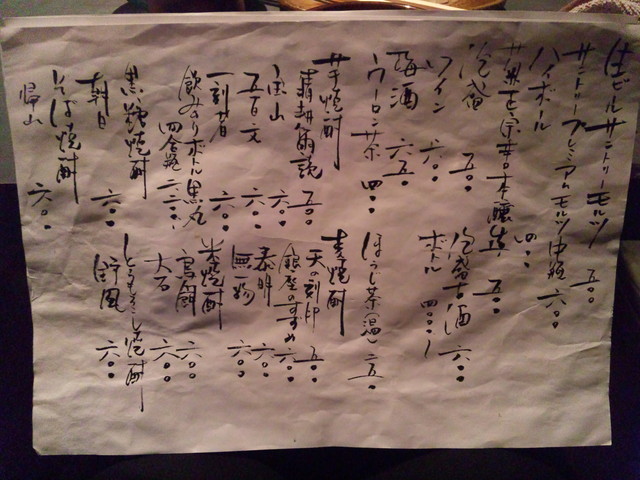 生ビールサントリーモルツ 五〇〇
サントリープレミアムモルツ中瓶 六〇〇
ハイボール 四〇〇
正宗辛口本醸造 五〇〇
泡盛 五〇〇
泡盛古酒 六〇〇
ワイン 六〇〇
ボトル 四〇〇〇
梅酒 六五〇
ウーロン茶 四〇〇
ほうじ茶(温) 二五〇
芋焼酎
五〇〇
宝山 六〇〇
五百文 六〇〇
一刻者 六〇〇
飲みきりボトル黒丸
四合瓶
黒糖焼酎
朝日 六〇〇
そば焼酎
帰山 六〇〇
麦焼酎
天の刻印 五〇〇
銀座のすずめ 六〇〇
泰明 六〇〇
無一物 六〇〇
米焼酎
鳥飼 六〇〇
大石 六〇〇
とうもろこし焼酎
六〇〇